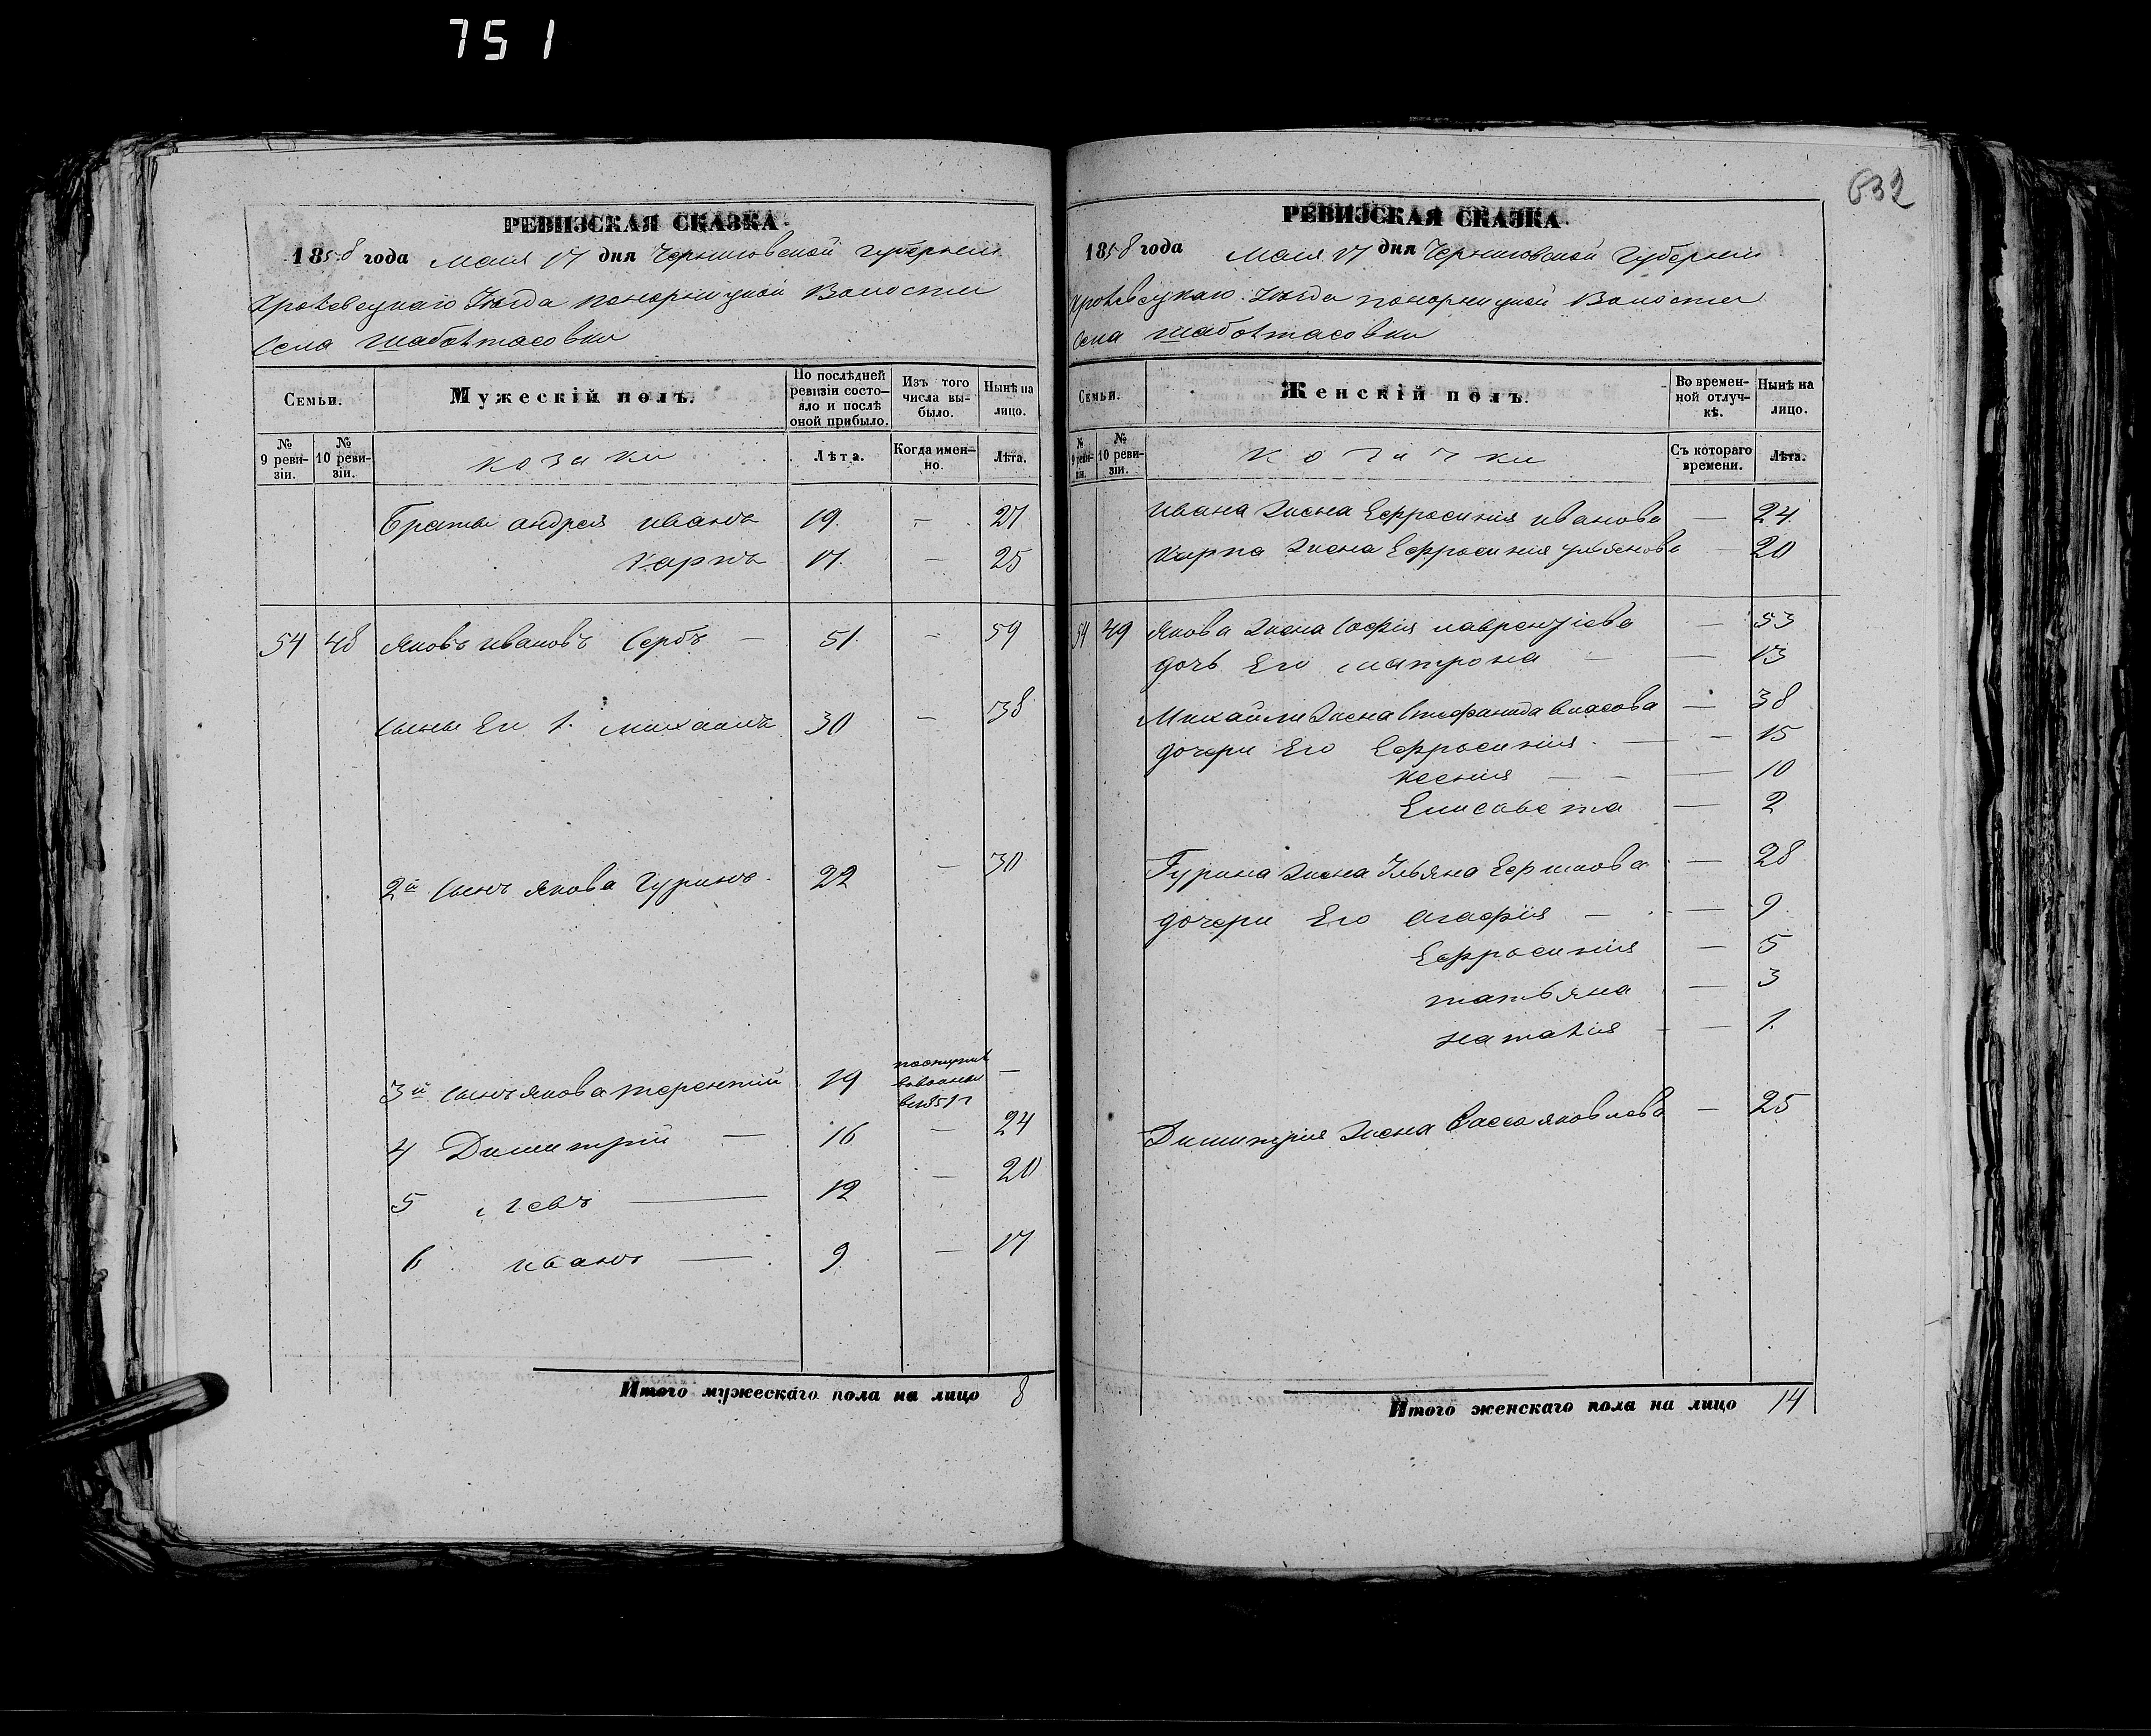 751
632
РЕВИЗСКАЯ СКАЗКА.
1858 года Маия 17 дня Черниговской губерніи
Кролевецкаго Уѣзда понорницкой Волости
села шабалтасовки
Семьи.
Мужескій полъ.
По послѣдней ревизіи состояло и послѣ оной прибыло.
Изъ того числа выбыло.
Нынѣ на лицо.
№ 9 ревизіи.
№ 10 ревизіи.
козаки
Лѣта.
Когда именно.
Лѣта.
Братья андрея иванъ 19. — 27
Карпъ 17. — 25
54 48 Яковъ ивановъ Сербъ — 51. — 59
сыны Его 1. михаилъ 30 — 38
2й сынъ якова Гуринъ 22 — 30
3й сынъ якова терентий 19 —
4 Димитрій — 16 — 24
5 левъ — 12 — 20
6 иванъ — 9 — 17
Итого мужескаго пола на лицо 8
РЕВИЗСКАЯ СКАЗКА.
1858 года Маия 17 дня Черниговской Губерніи
Кролевецкаго Уѣзда понорницкой Волости
села шабалтасовки
Семьи.
Женскій полъ.
Во временной отлучкѣ.
Нынѣ на лицо.
№ 9 ревизіи.
№ 10 ревизіи.
козачки
Съ котораго времени.
Лѣта.
ивана жена Ефросинія иванова — 24.
карпа жена Ефросинія ульянова — 20
54 49 Якова жена Софія лаврентіева — 53
дочь Его матрона — — 13
Михайли жена Стефанида власова — 38
дочери Его Ефросинія — — 15
ксенія — — — 10
Елисавета — 2
Гурина жена Ульяна Ермкова — 28
дочери Его агафія — — 9
Ефросинія — 5
татьяна — 3
наталія — — 1.
Димитрія жена Васса яковлева — 25
Итого женскаго пола на лицо 14